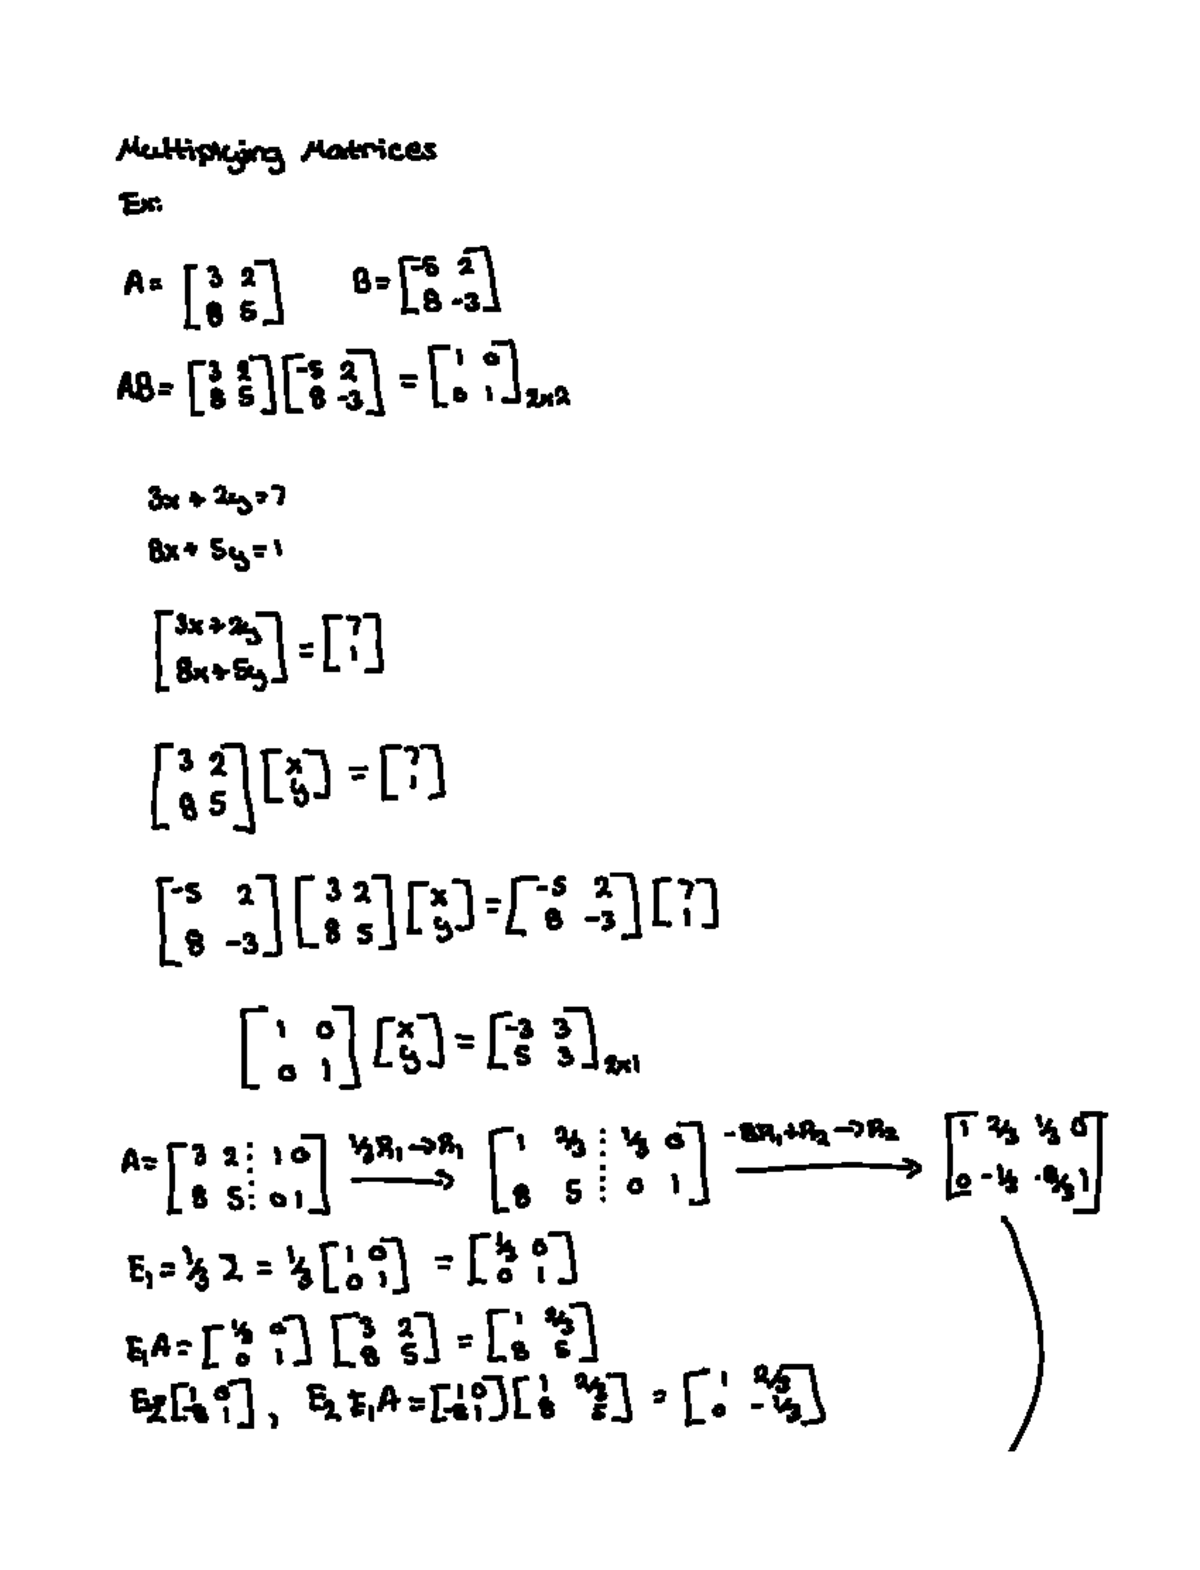 Multiplying Matrices
Ex:
A = [3 2; 8 5]   B = [-5 2; 8 -3]
AB = [3 2; 8 5] [-5 2; 8 -3] = [1 0; 0 1] 2x2
3x + 2y = 7
8x + 5y = 1
[3x + 2y; 8x + 5y] = [7; 1]
[3 2; 8 5] [x; y] = [7; 1]
[-5 2; 8 -3] [3 2; 8 5] [x; y] = [-5 2; 8 -3] [7; 1]
[1 0; 0 1] [x; y] = [-3 3; 5 3] 2x1
A = [3 2 ⋮ 1 0; 8 5 ⋮ 0 1] 1/3R1 → R1 [1 2/3 ⋮ 1/3 0; 8 5 ⋮ 0 1] -8R1 + R2 → R2 [1 2/3 1/3 0; 0 -1/3 -8/3 1]
E1 = 1/3 2 = 1/3 [1 0; 0 1] = [1/3 0; 0 1]
E1A = [1/3 0; 0 1] [3 2; 8 5] = [1 2/3; 8 5]
E2 = [1 0; -8 1], E2 E1 A = [1 0; -8 1] [1 2/3; 8 5] = [1 2/3; 0 -1/3]